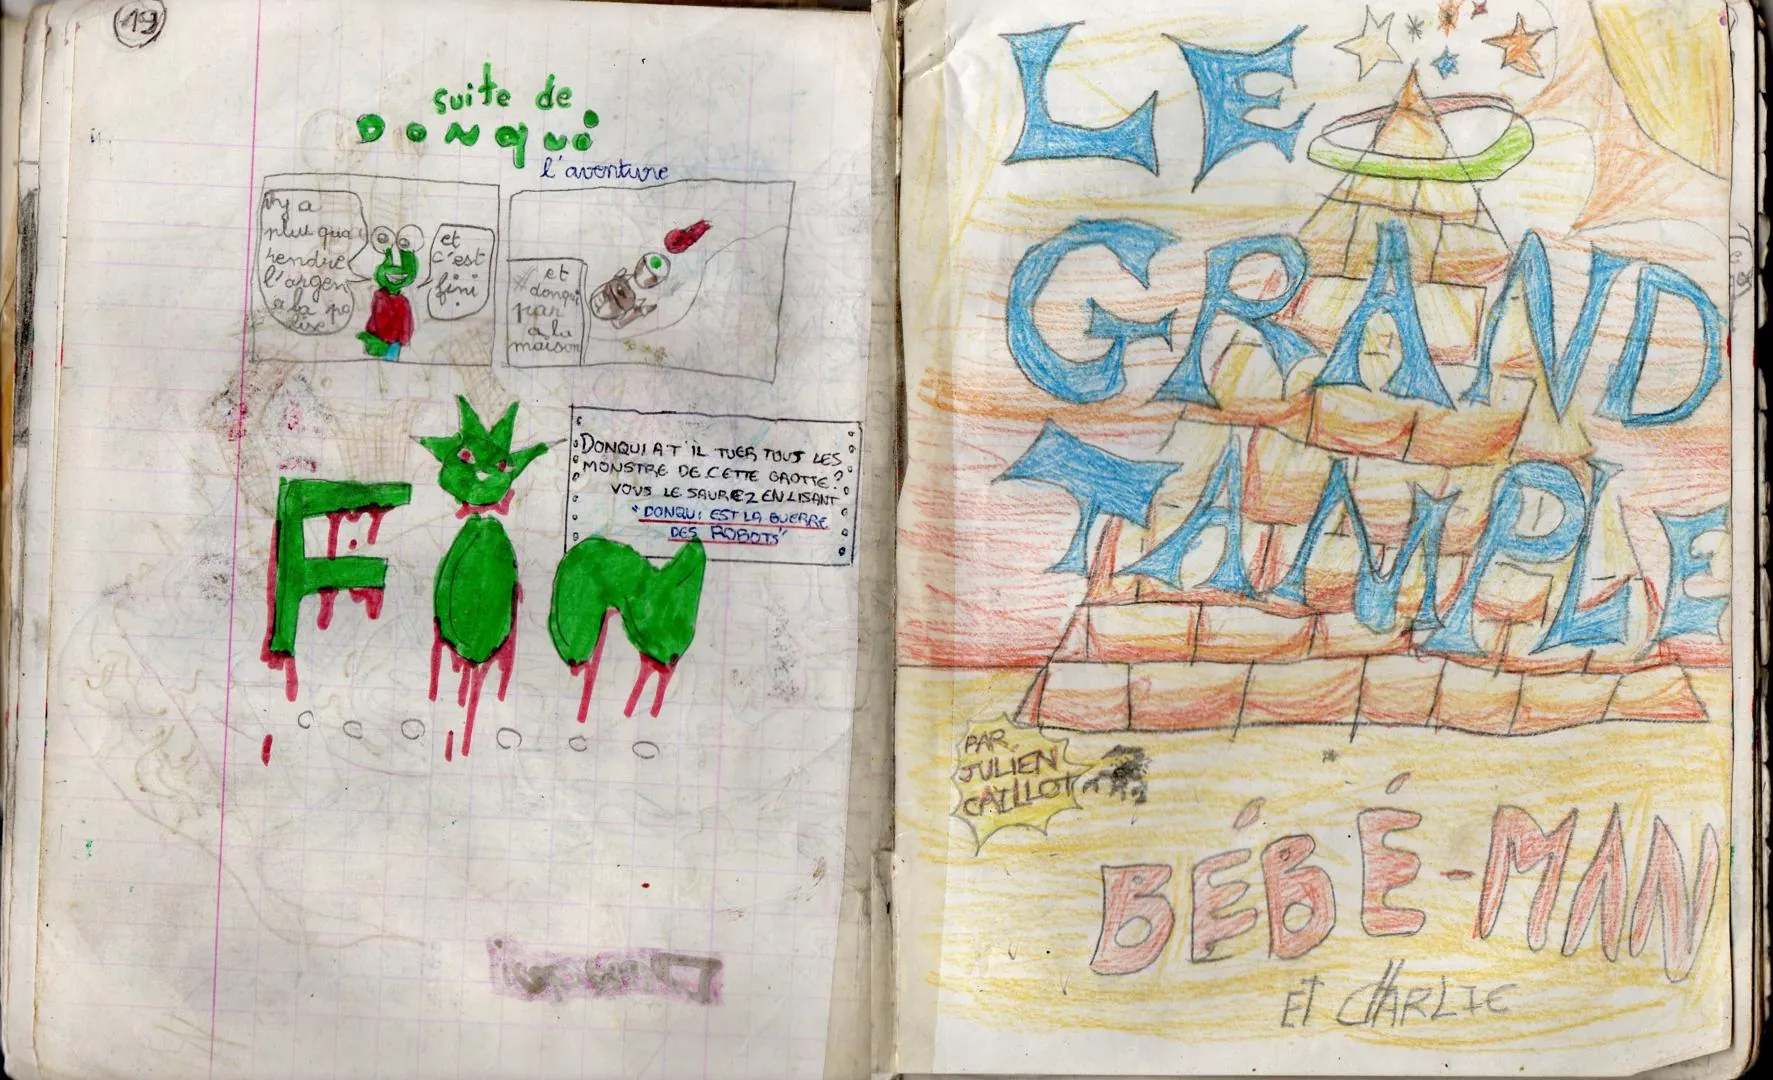 19
suite de
DONqui
l'aventure
n'y a
plut qua
rendre
l'argen
a la po
lise
et
c'est
fini
!
et
donqui
par
a la
maison
FIN
DONQUI A T'IL TUER TOUS LES
MONSTRE DE CETTE GROTTE?
VOUS LE SAUREZ EN LISANT
"DONQUI EST LA GUERRE
DES ROBOTS"
LE
GRAND
TAMPLE
PAR
JULIEN
CAILLOT
BÉBÉ-MAN
ET CHARLIE